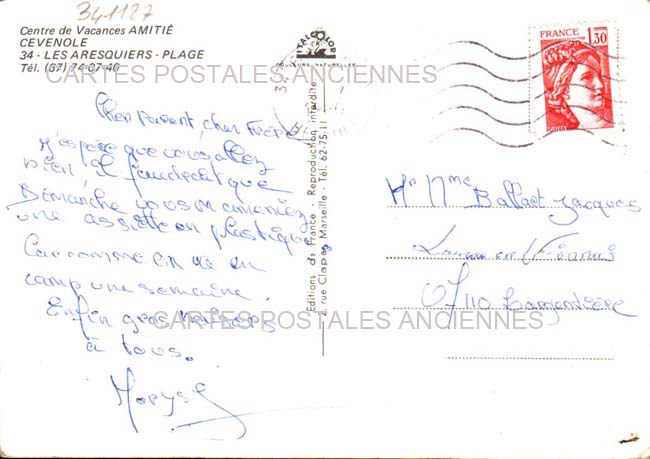 341127
Centre de Vacances AMITIÉ
CEVENOLE
34 - LES ARESQUIERS - PLAGE
Tél. (67) 74-07-40
CARTES POSTALES ANCIENNES
Cher Parent, cher Frère
J'espère que vous allez
bien il faudrait que
Dimanche vous m'ameniez
une assiette en plastique
Car comme on va en
camp une semaine
Enfin gros
à tous.
Maryse
CARTES POSTALES ANCIENNES
ITALCOLOR
Editions de France - Reproduction interdite
2, rue Clapier Marseille - Tél. 62-75-11
FRANCE
1,30
POSTES
Mr Mme Ballaet Jacques
Laurac en Vivarais
07110 Largentière